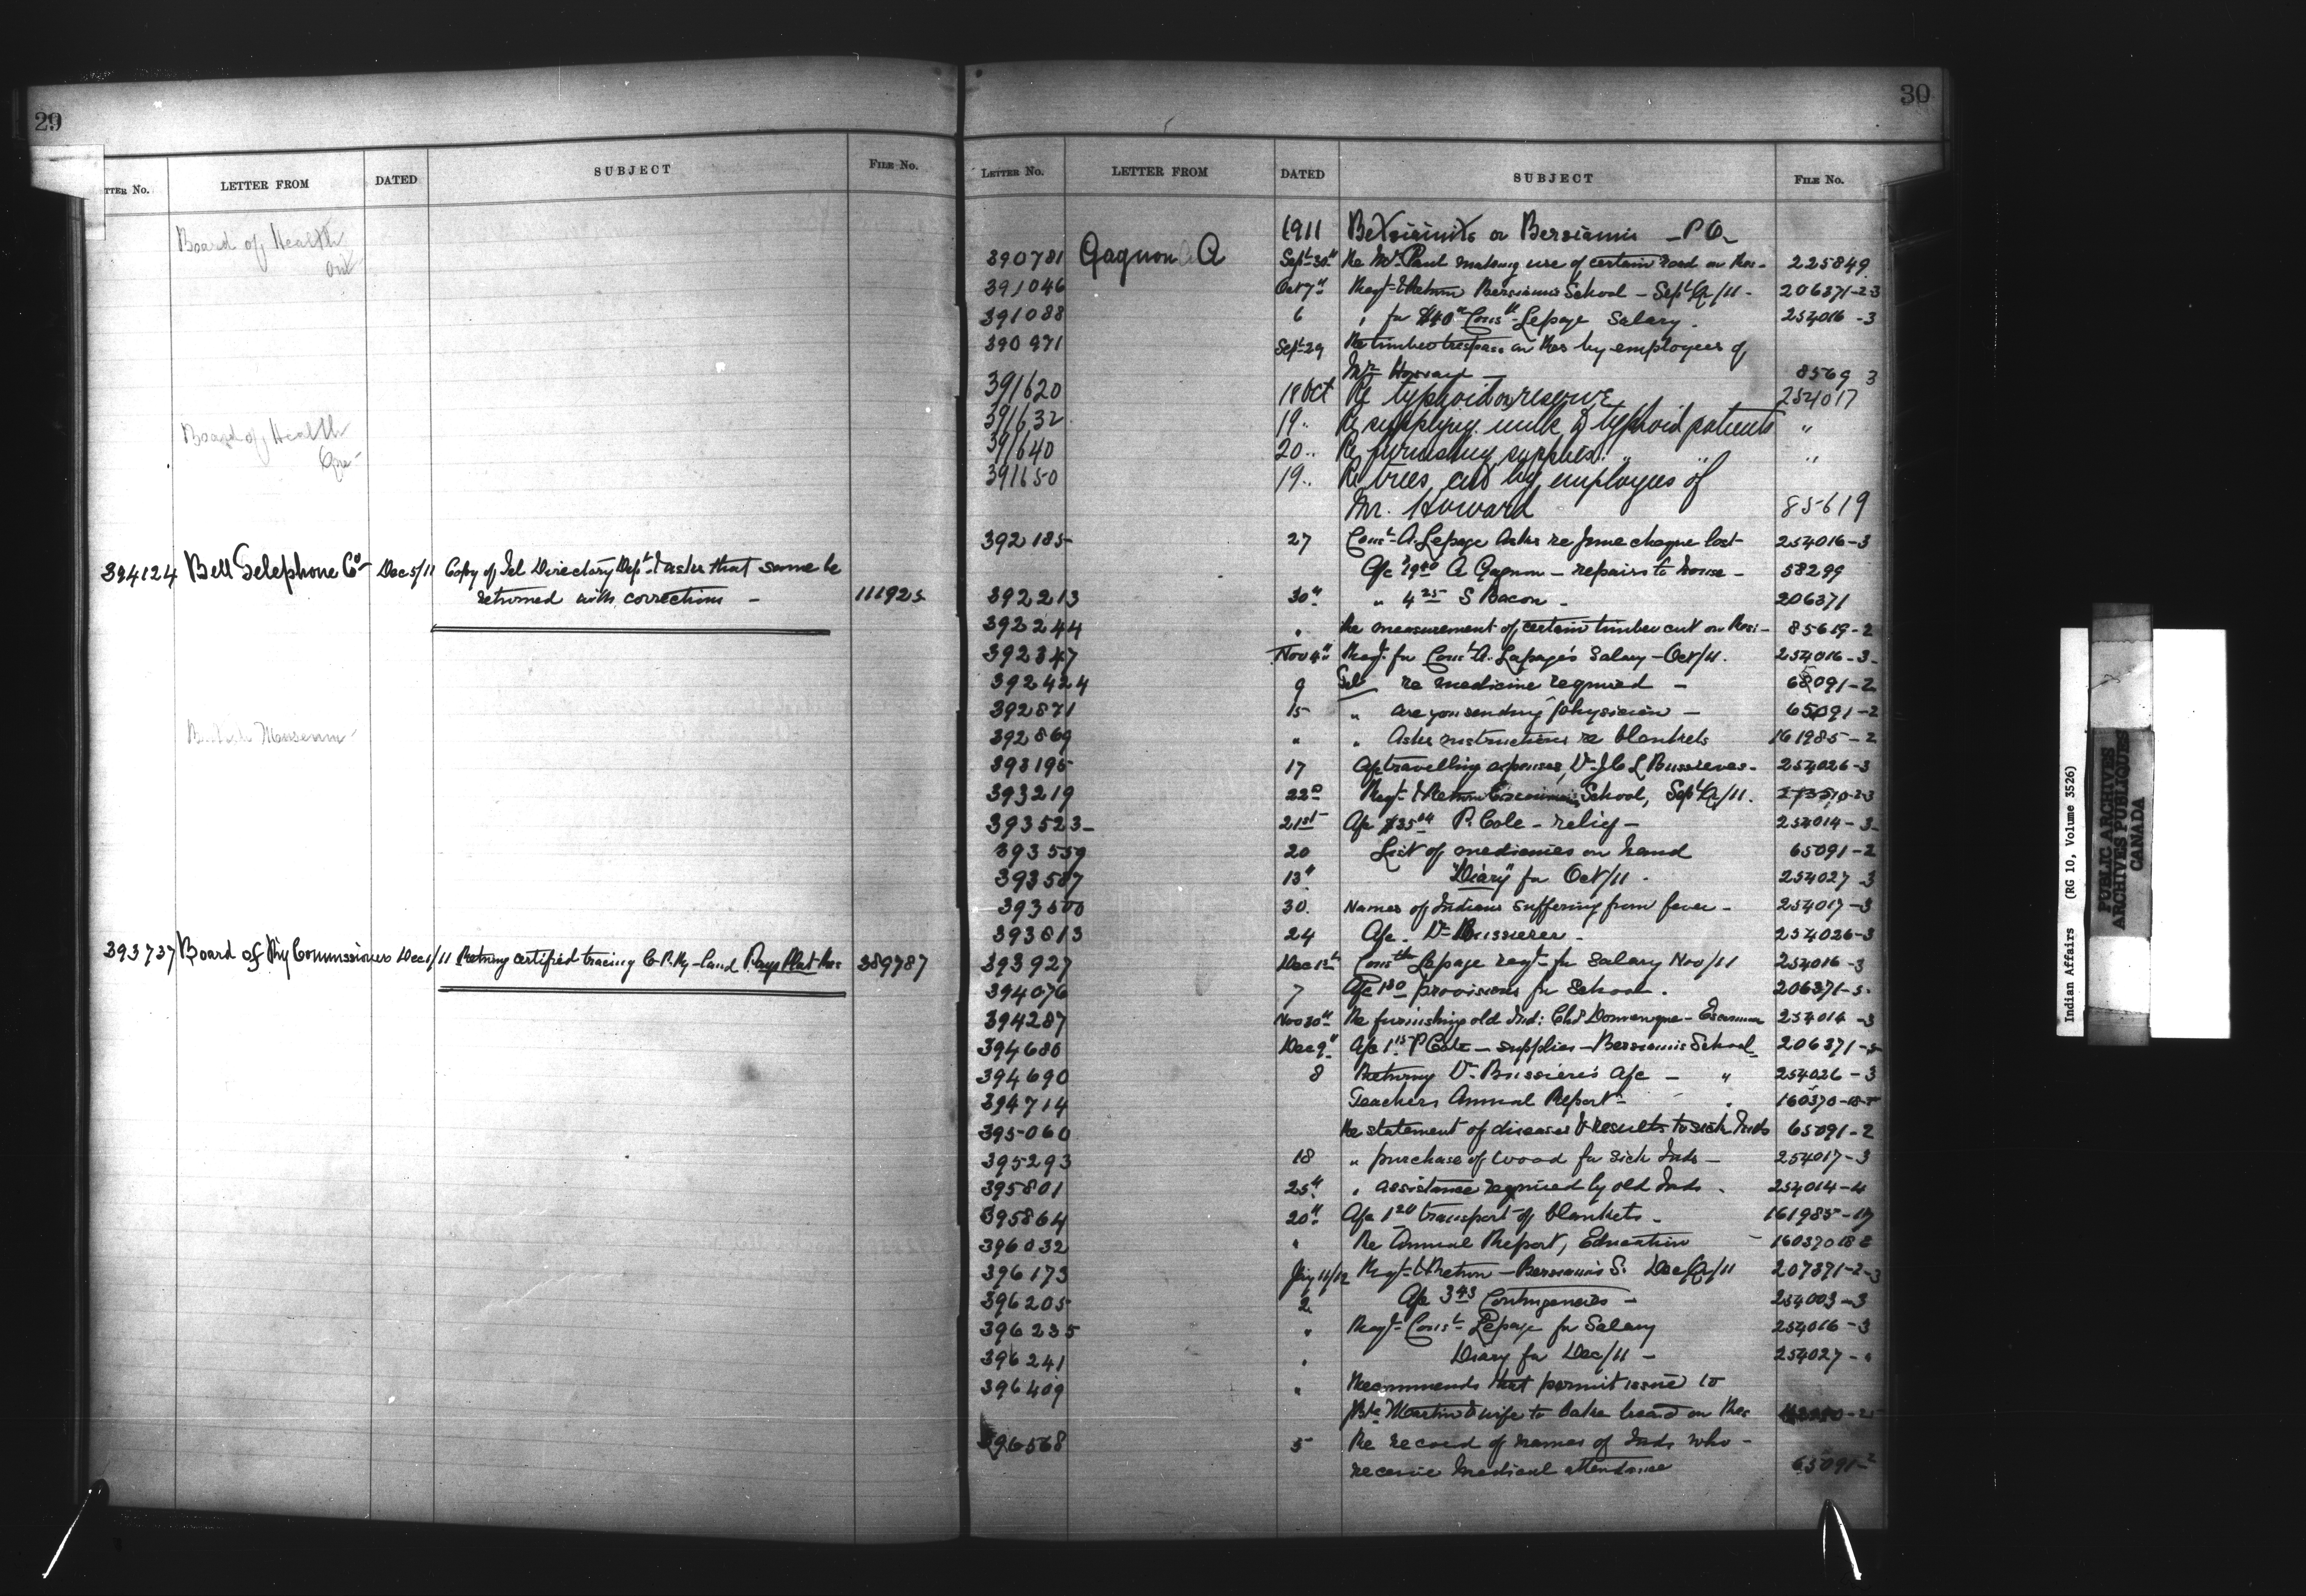 29
LETTER No. LETTER FROM DATED SUBJECT FILE No.
Board of Health
Ont
Board of Health
Que
394124 Bell Telephone Co Dec 5/11 Copy of Tel Directory Dept & asks that same be
returned with corrections - 111925
British Museum
393737 Board of Ry Commissioners Dec 1/11 Returng certified tracing C.P. Ry - land Pays Plat Res 389787
30
LETTER No. LETTER FROM DATED SUBJECT FILE No.
1911 Betsiamits or Bersiamis - P.Q.
390781 Gagnon A Sept 30" Re Mr Paul making use of certain road on Res - 225849
391046 Oct 7" Reqt & Return Bersiamis School - Sept Qr/11 - 206371-2-3
391088 6 " for $40 Const Lepage Salary. 254016-3
390971 Sept 29 Re timber trespass on Res by employees of
Mr Howard - 8569 3
391620 18 Oct Re typhoid on reserve 254017
391632 19.. Re supplying milk to typhoid patients "
391640 20.. Re furnishing supplies " " "
391650 19.. Re trees cut by employees of
Mr. Howard 85619
392185 27 Const A. Lepage asks re June cheque lost 254016-3
A/c A Gagnon - repairs to house - 58299
392213 30" " 4.25 S Bacon - 206371
392244 " Re measurement of certain timber cut on Res - 85619-2
392347 Nov 4" Reqt for Const A. Lepage's Salary - Oct/11. 254016-3-
392424 9 Tel re medicine required - 65091-2
392871 15 " are you sending physician - 65091-2
392869 " " Asks instructions re blankets 161985-2
393195 17 A/c travelling expenses, Dr 254026-3
393219 22nd Reqt & Return Escoumins School, Sept Qr/11.
393523- 21st A/c $35 P. Cole - relief - 254014-3-
393559 20 List of medicines on hand 65091-2
393587 13" "Diary" for Oct/11. 254027-3
393600 30. Names of Indians suffering from fever - 254017-3
393613 24 A/c. Dr Bussieres - 254026-3
393927 Dec 1st Const Lepage reqt for Salary Nov/11 254016-3
394076 7 A/c 1.80 provisions for School. 206371-5.
394287 Nov 30" Re furnishing old Ind: Chs Domenique - Escoumins 254014-3
394680 Dec 9" A/c 1.15 P Cole - supplies - Bersiamis School 206371-5
394690 8 Returng Dr. Bussiere's A/c - " 254026-3
394714 Teachers Annual Report - " 160370-18-
395060 Re statement of diseases & results to sick Inds 65091-2
395293 18 " purchase of wood for sick Inds - 254017-3
395801 25" " assistance required by old Inds - 254014-4
395864 20" A/c 1.20 transport of blankets - 161985-
396032 " Re Annual Report, Education - 160370 18
396173 Jany 11/12 Reqt & Return - Bersiamis S. Dec Qr/11 207371-2-3
396205 2 A/c 3.43 Contingencies - 254003-3
396235 " Reqt Const Lepage for Salary 254016-3
396241 " Diary for Dec/11 - 254027-"
396409 " Recommends that permit issue to
Martin & wife to on Res
396568 5 Re record of names of Inds who -
receive medical attendance 65091-2
Indian Affairs (RG 10, Volume 3526)
PUBLIC ARCHIVES
ARCHIVES PUBLIQUES
CANADA